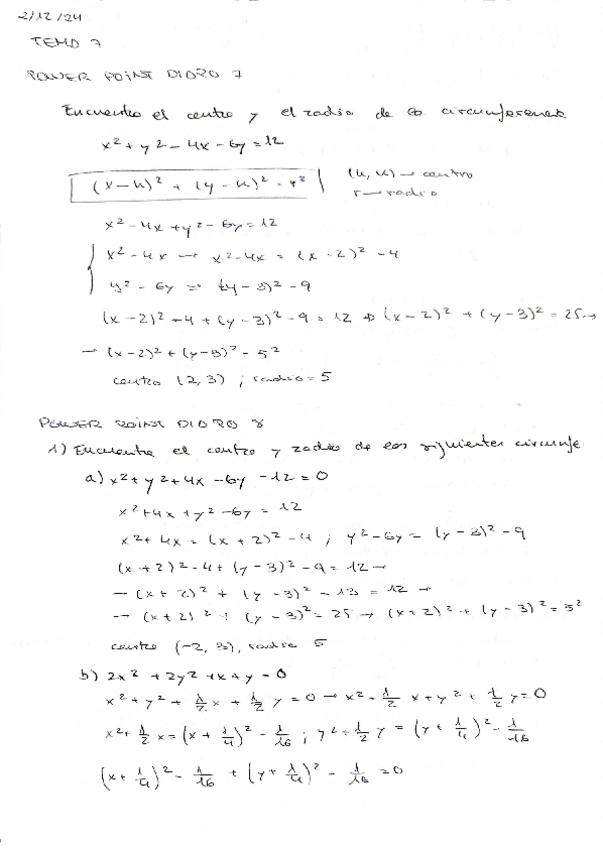 2/12/24
TEMA 7
POWER POINT DIAPO 7
Encuentra el centro y el radio de la circunferencia
x² + y² - 4x - 6y = 12
(x - h)² + (y - k)² = r²
(h, k) → centro
r → radio
x² - 4x + y² - 6y = 12
x² - 4x → x² - 4x = (x - 2)² - 4
y² - 6y = (y - 3)² - 9
(x - 2)² - 4 + (y - 3)² - 9 = 12 ⇒ (x - 2)² + (y - 3)² = 25 →
→ (x - 2)² + (y - 3)² = 5²
centro (2, 3) ; radio = 5
POWER POINT DIAPO 8
1) Encuentra el centro y radio de las siguientes circunfe
a) x² + y² + 4x - 6y - 12 = 0
x² + 4x + y² - 6y = 12
x² + 4x = (x + 2)² - 4 ; y² - 6y = (y - 3)² - 9
(x + 2)² - 4 + (y - 3)² - 9 = 12 →
→ (x + 2)² + (y - 3)² - 13 = 12 →
→ (x + 2)² + (y - 3)² = 25 → (x + 2)² + (y - 3)² = 5²
centro (-2, 3), radio 5
b) 2x² + 2y² + x + y = 0
x² + y² + 1/2 x + 1/2 y = 0 → x² + 1/2 x + y² + 1/2 y = 0
x² + 1/2 x = (x + 1/4)² - 1/16 ; y² + 1/2 y = (y + 1/4)² - 1/16
(x + 1/4)² - 1/16 + (y + 1/4)² - 1/16 = 0